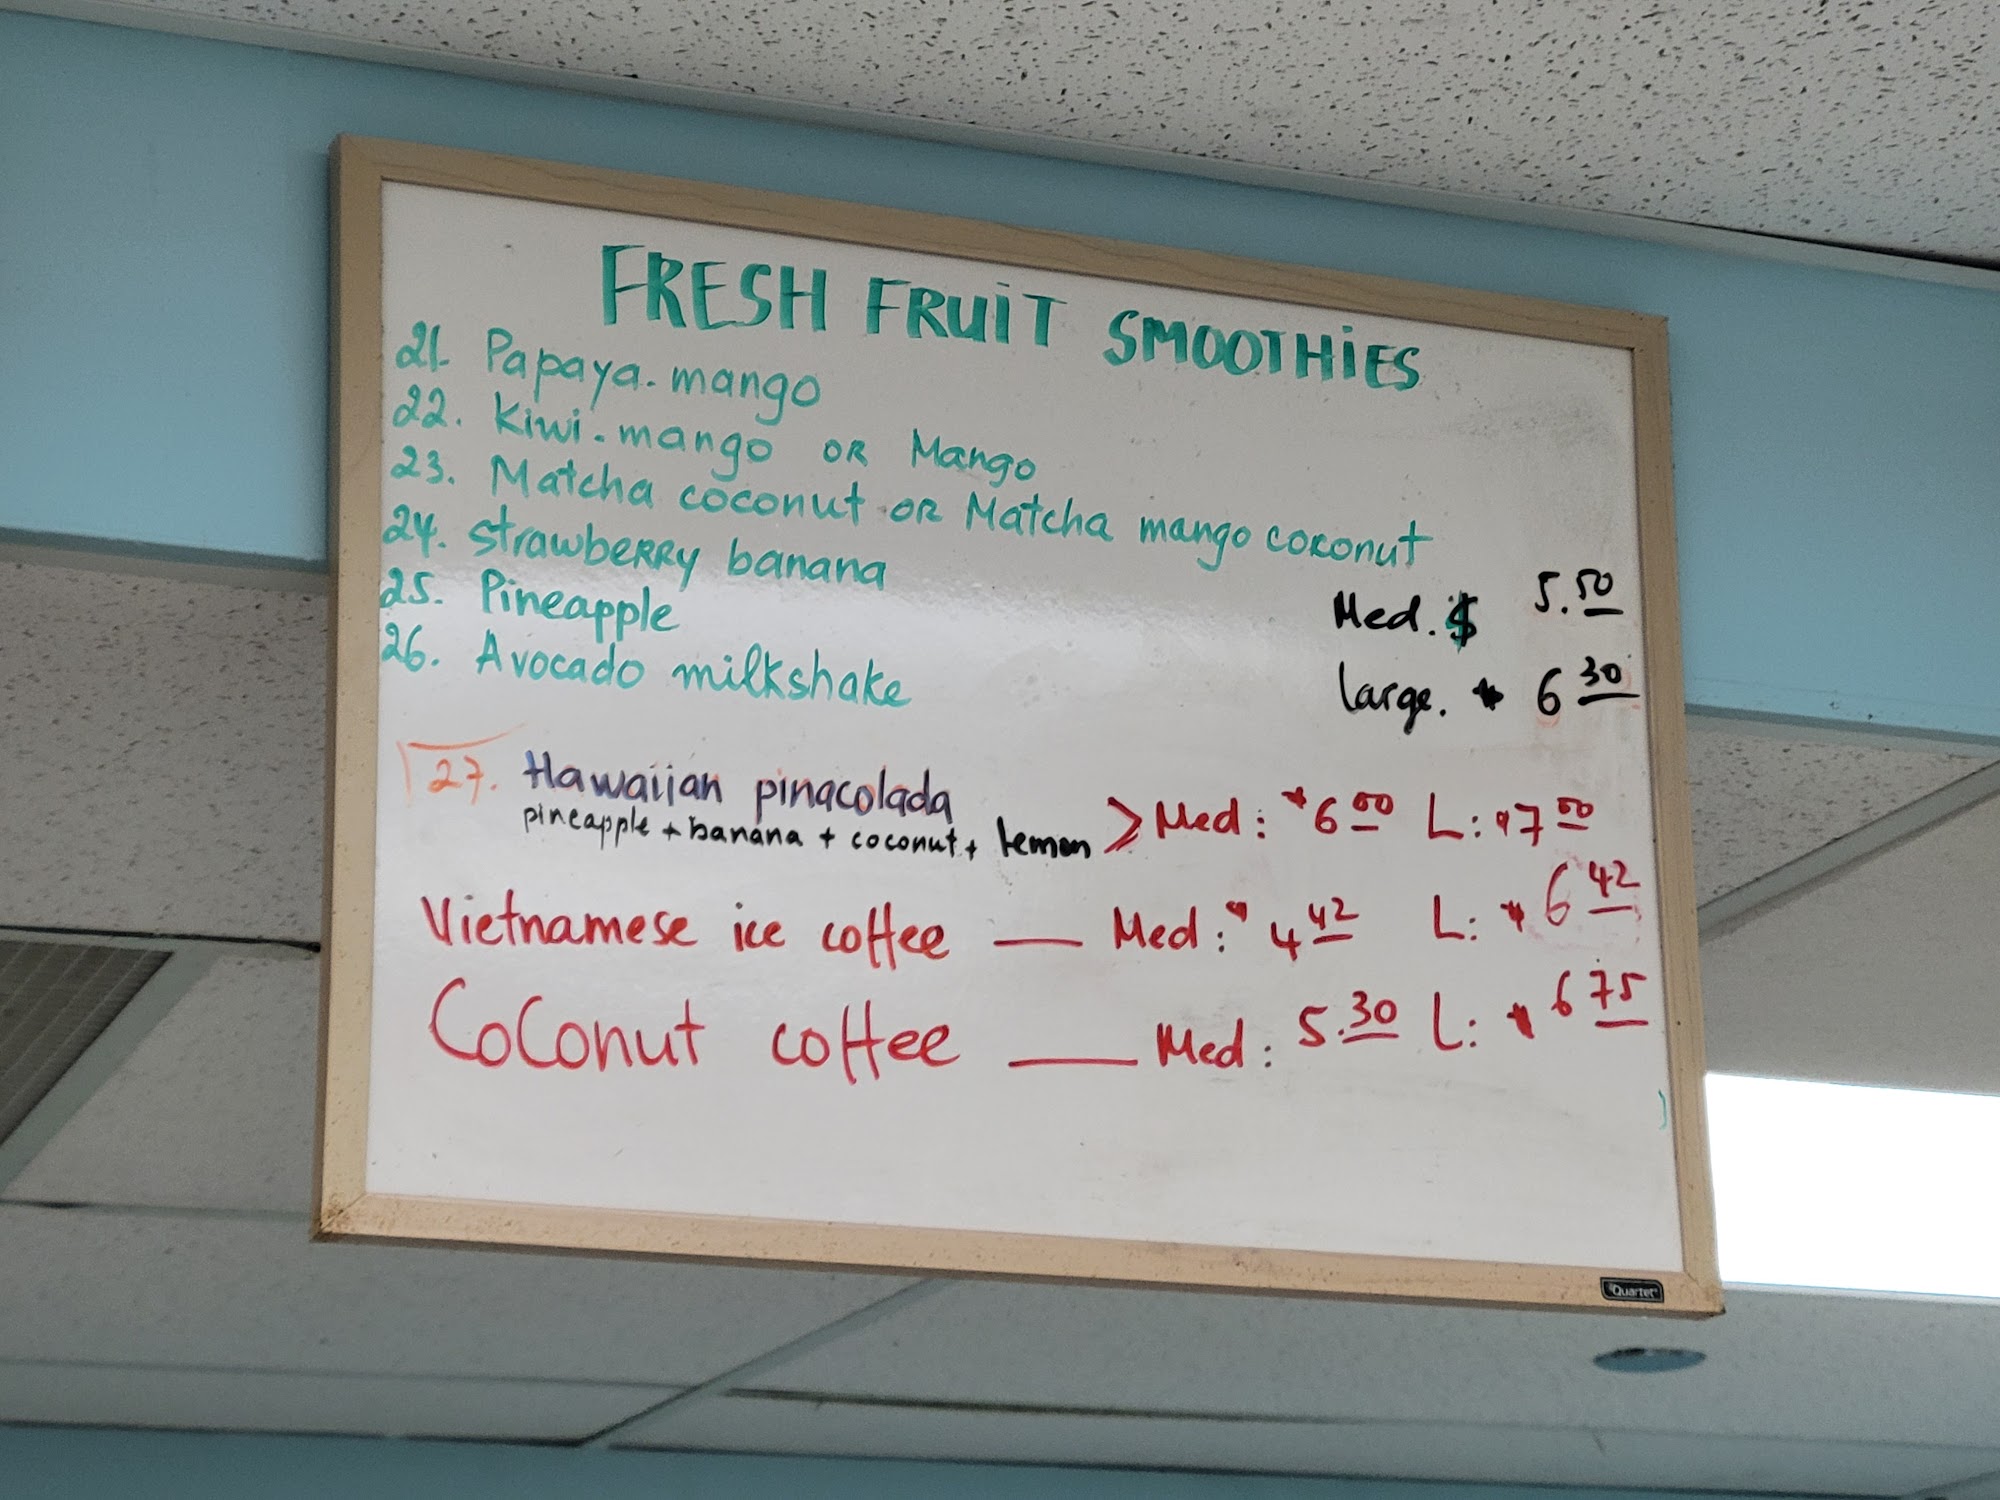 FRESH FRUiT SMOOTHiES
21. Papaya.mango
22. Kiwi.mango OR Mango
23. Matcha coconut OR Matcha mango coconut
24. strawbeRRy banana
25. Pineapple
26. Avocado milkshake
Med. $ 5.50
large. $ 6 30
27. Hawaiian pinacolada
pineapple + banana + coconut + lemon > Med: $6 00 L: $7 00
Vietnamese ice coffee — Med: $4 42 L: $6 42
CoConut coffee — Med: 5.30 L: $6 75
Quartet